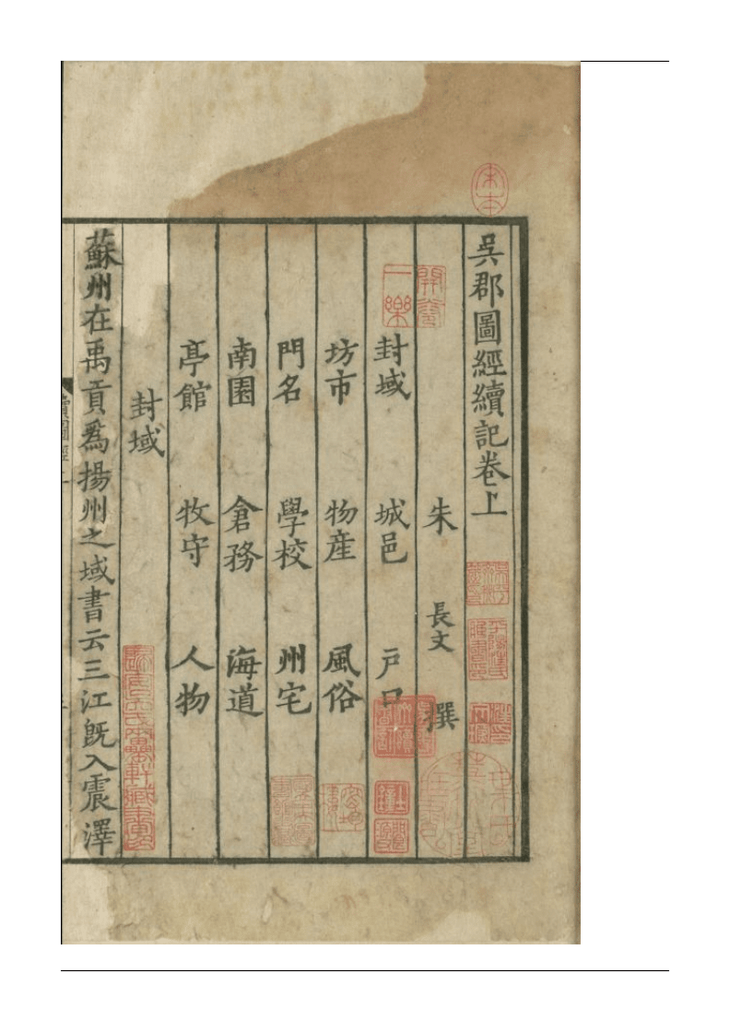 吳郡圖經續記卷上
朱 長文 撰
封域 城邑 戶口
坊市 物産 風俗
門名 學校 州宅
南園 倉務 海道
亭館 牧守 人物
封域
蘇州在禹貢爲揚州之域書云三江旣入震澤
宋本
開卷一樂